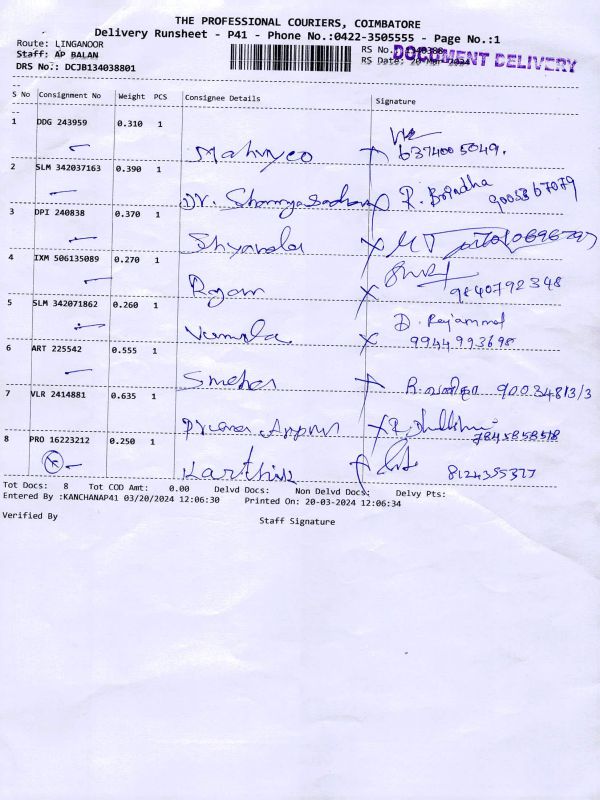 THE PROFESSIONAL COURIERS, COIMBATORE
Delivery Runsheet - P41 - Phone No.:0422-3505555 - Page No.:1
Route: LINGANOOR
Staff: AP BALAN
DRS No.: DCJB134038801
RS No.:
RS Date: 20-Mar-2024
DOCUMENT DELIVERY
S No Consignment No Weight PCS Consignee Details Signature
1 DDG 243959 0.310 1
6374005049.
2 SLM 342037163 0.390 1 Dr.
3 DPI 240838 0.370 1 Shyamala
4 IXM 506135089 0.270 1 Rajam
9840792348
5 SLM 342071862 0.260 1 Vimala D. Rejammal
9944993698
6 ART 225542 0.555 1
7 VLR 2414881 0.635 1
8 PRO 16223212 0.250 1 Karthik
8124355377
Tot Docs: 8 Tot COD Amt: 0.00 Delvd Docs: Non Delvd Docs: Delvy Pts:
Entered By :KANCHANAP41 03/20/2024 12:06:30 Printed On: 20-03-2024 12:06:34
Verified By
Staff Signature